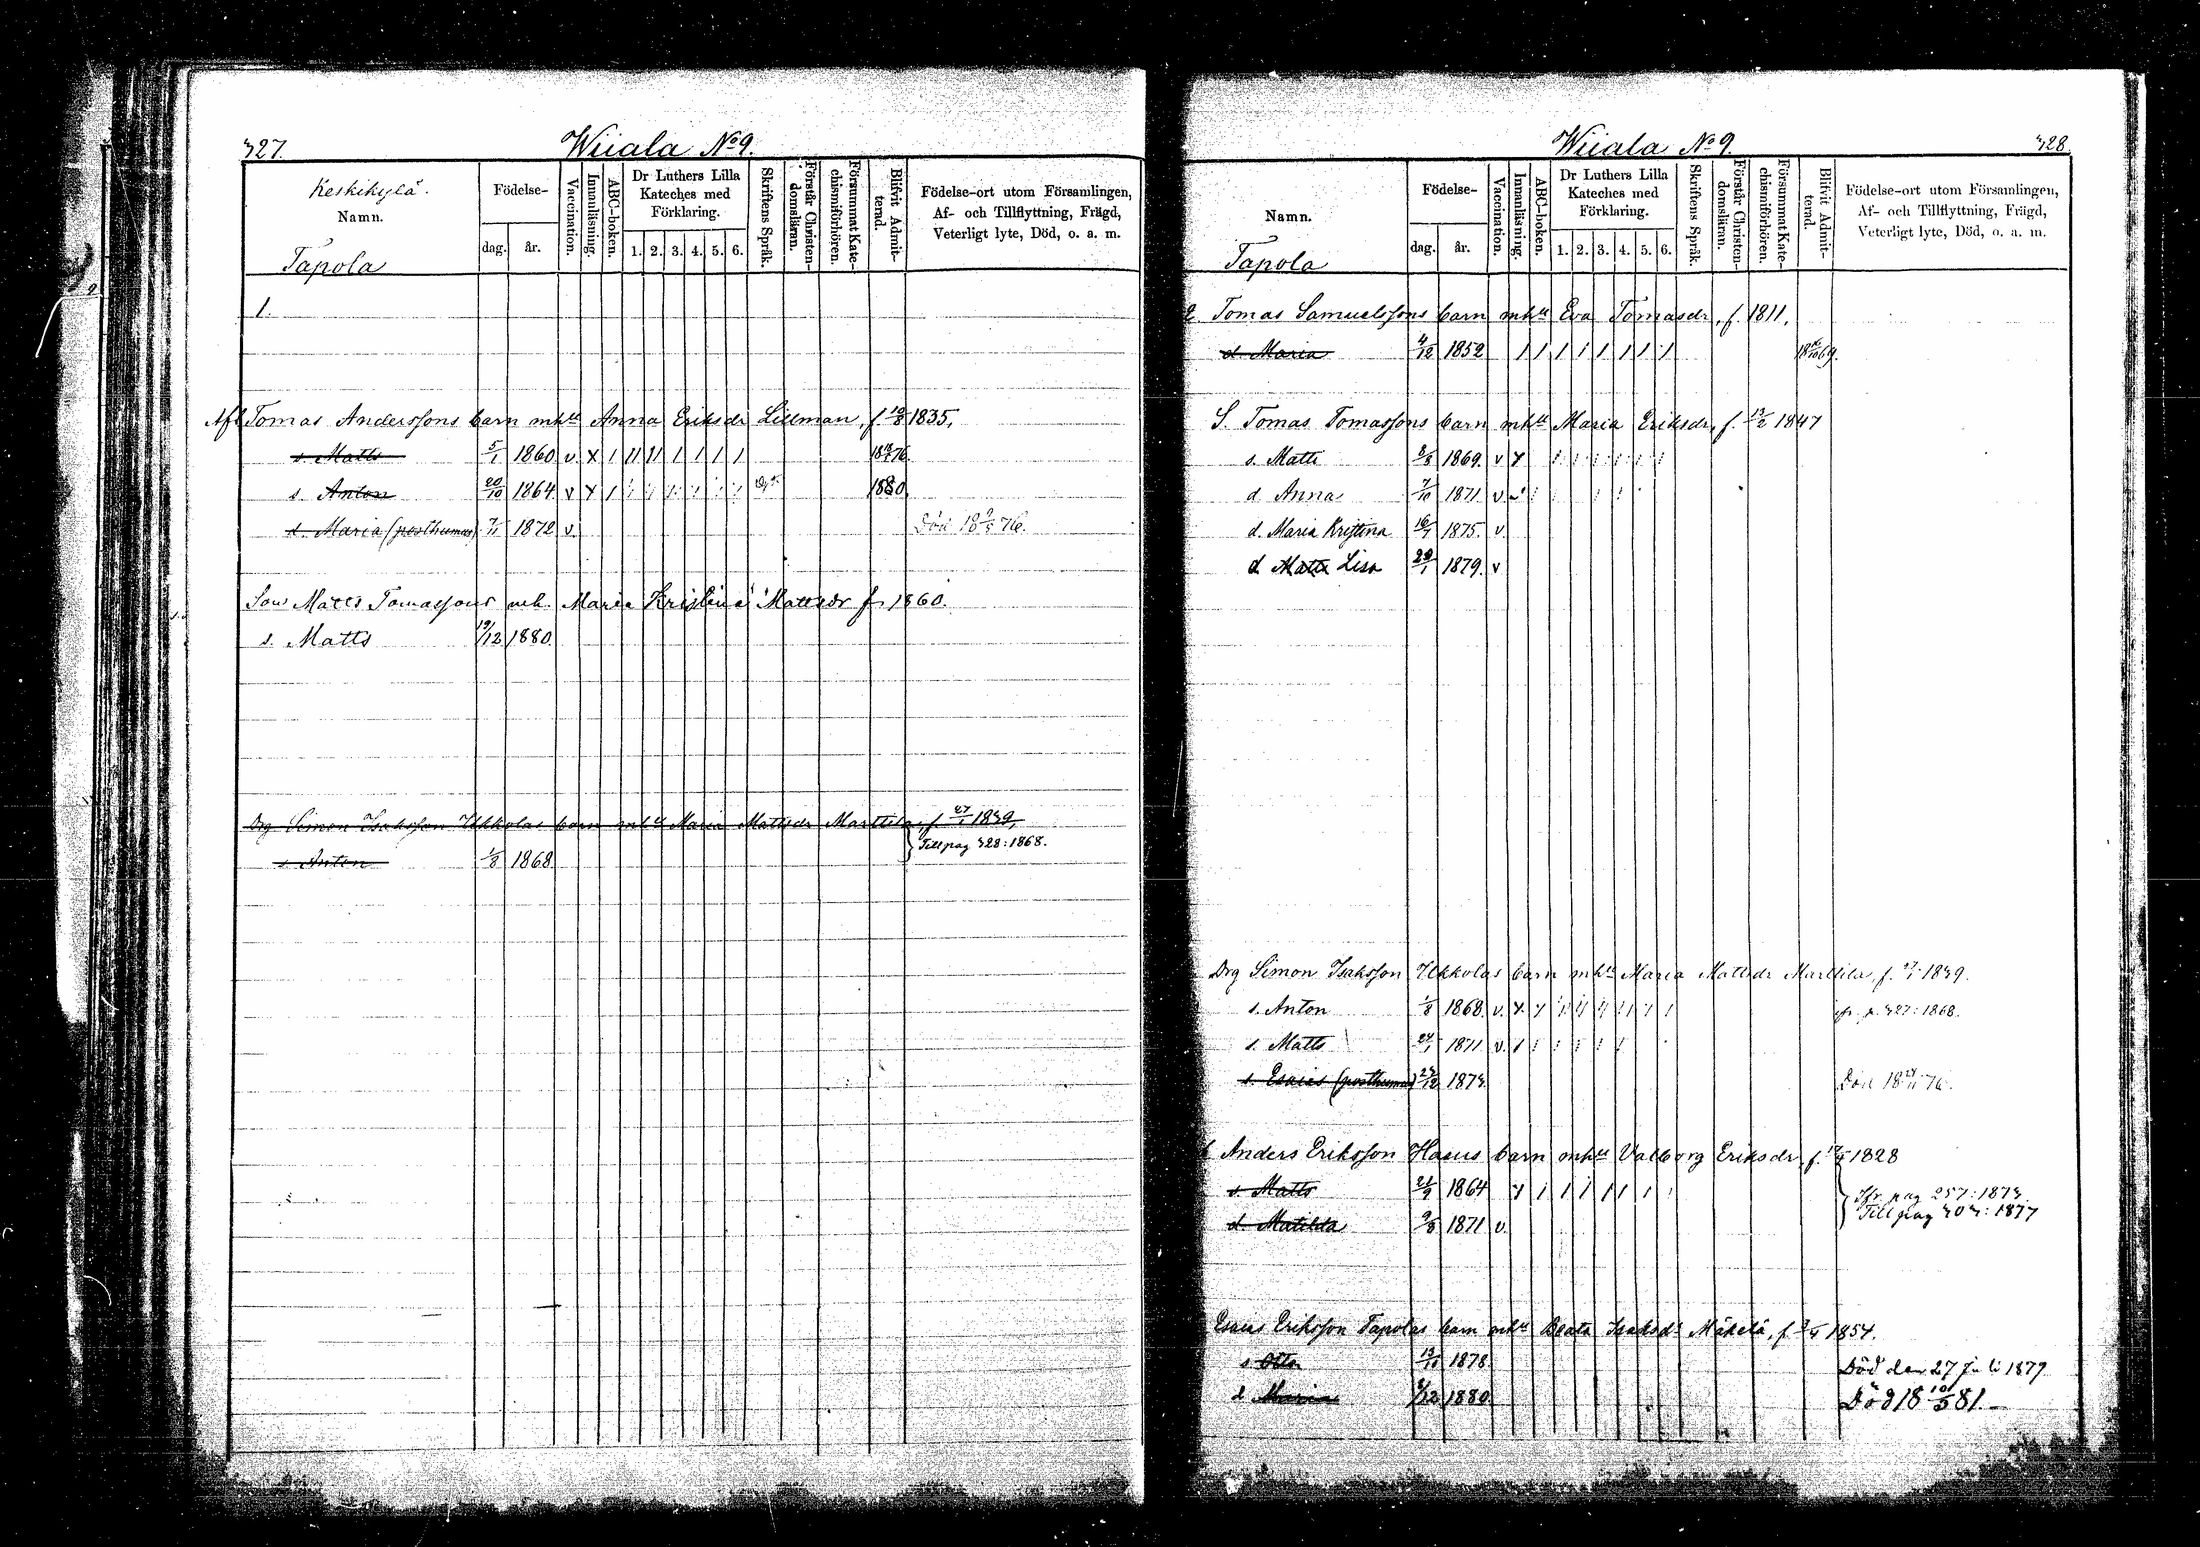 327.
Wiiala No 9.
Keskikylä.
Namn.
Tapola
Födelse-
dag. år.
Vaccination.
Innanläsning.
ABC-boken.
Dr Luthers Lilla
Kateches med
Förklaring.
1. 2. 3. 4. 5. 6.
Skriftens Språk.
Förstår Christen-
domsläran.
Försummat Kate-
chismiförhören.
Blifvit Admit-
terad.
Födelse-ort utom Församlingen,
Af- och Tillflyttning, Frägd,
Veterligt lyte, Död, o. a. m.
1.
Afl Tomas Anderssons barn mhu Anna Eriksdr Lillman, f. 1835,
s. Matts 5/1 1860 v x
s Anton 20/10 1864 v 1880
d. Maria (posthumus) 7/1 1872 v. Död 18 9/5 76.
Son Matts Tomassons mh. Maria Kristina Mattsdr f. 1860.
s. Matts 19/12 1880.
Drg Simon Isaksson Ukkolas barn mhu Maria Mattsdr Marttila, f. 27/1 1839,
s Anton 1/8 1868
Till pag 328: 1868.
Wiiala No 9.
328.
Namn.
Tapola
Födelse-
dag. år.
Vaccination.
Innanläsning.
ABC-boken.
Dr Luthers Lilla
Kateches med
Förklaring.
1. 2. 3. 4. 5. 6.
Skriftens Språk.
Förstår Christen-
domsläran.
Försummat Kate-
chismiförhören.
Blifvit Admit-
terad.
Födelse-ort utom Församlingen,
Af- och Tillflyttning, Frägd,
Veterligt lyte, Död, o. a. m.
2. Tomas Samuelssons barn mhu Eva Tomasdr, f. 1811.
d Maria 4/12 1852
S. Tomas Tomassons barn mhu Maria Eriksdr, f. 13/2 1847
s. Matts 1869. v
d Anna 7/10 1871 v
d. Maria Kristina 16/1 1875. v.
d Matts Lisa 29/1 1879. v
Drg Simon Isaksson Ukkolas barn mhu Maria Mattsdr Marttila, f. 27/1 1839.
s. Anton 1/8 1868. v. fr. p. 327: 1868.
s. Matts 24/1 1871 v.
s. Esaias (posthumus) 1873. Död 76.
Anders Eriksson Hacus barn mhu Valborg Eriksdr, f. 1828
s. Matts 21/9 1864
d. Matilda 9/8 1871 v.
Ifr. pag 257: 1873.
Till pag 303: 1877
Esaias Eriksson Tapolas barn mhu Beata Isaksdr Mäkelä, f. 1854.
s Otto 13/10 1878. Död den 27 Juli 1879
d Maria 1880. Död 18 10/5 81.